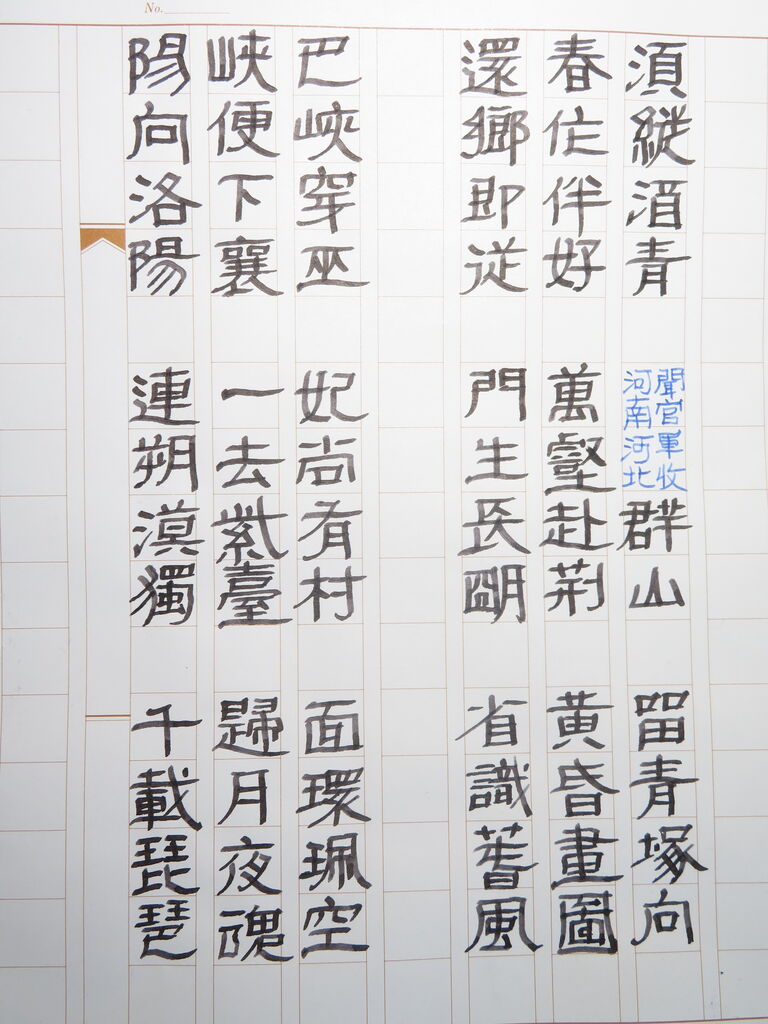 No.
須縱酒青
春作伴好
還鄉即従
巴峽穿巫
峽便下襄
陽向洛陽
聞官軍收
河南河北
群山
萬壑赴荊
門生長明
妃尚有村
一去紫臺
連朔漠獨
留青塚向
黃昏畫圖
省識春風
面環珮空
歸月夜魂
千載琵琶